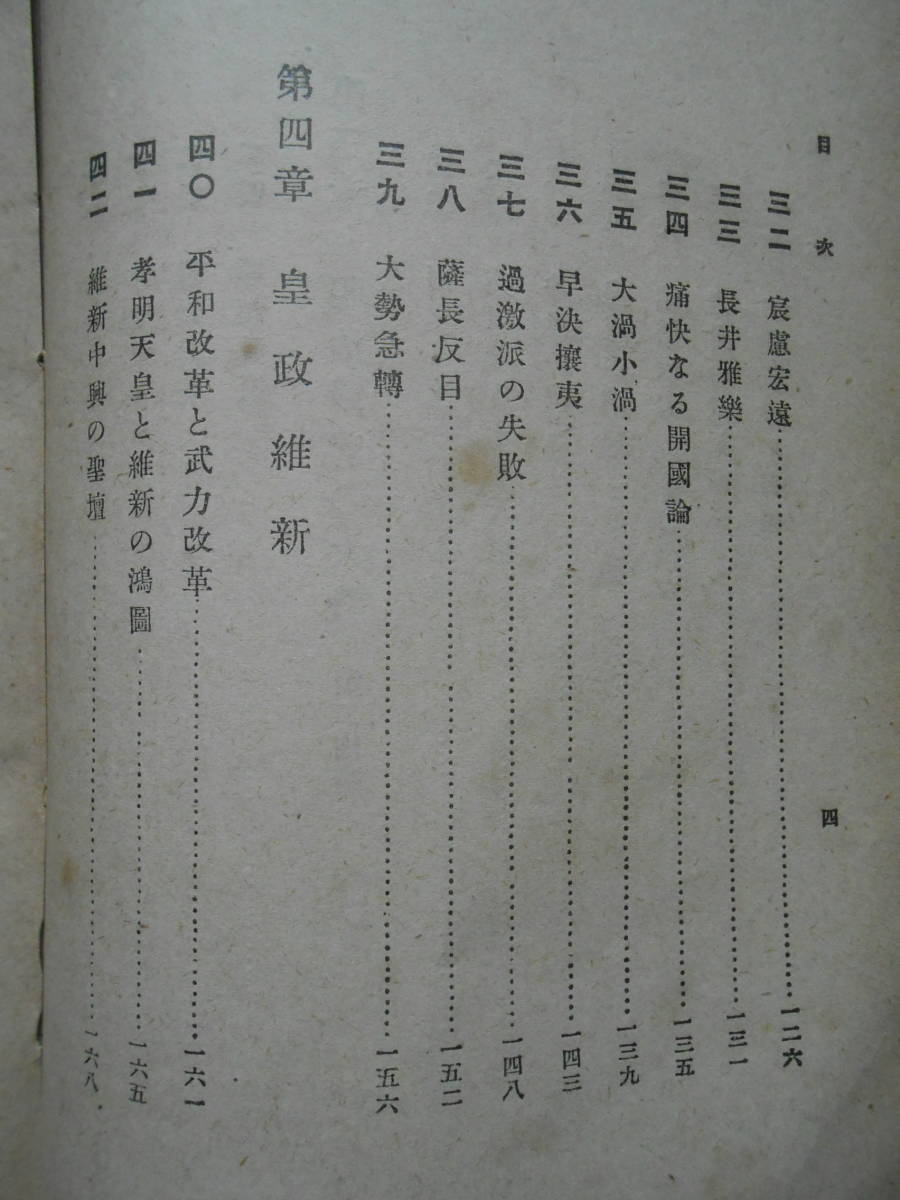 目次
四
三二 宸慮宏遠……一二六
三三 長井雅樂……一三一
三四 痛快なる開國論……一三五
三五 大渦小渦……一三九
三六 早決攘夷……一四三
三七 過激派の失敗……一四八
三八 薩長反目……一五二
三九 大勢急轉……一五六
第四章 皇政維新
四〇 平和改革と武力改革……一六一
四一 孝明天皇と維新の鴻圖……一六五
四二 維新中興の聖壇……一六八